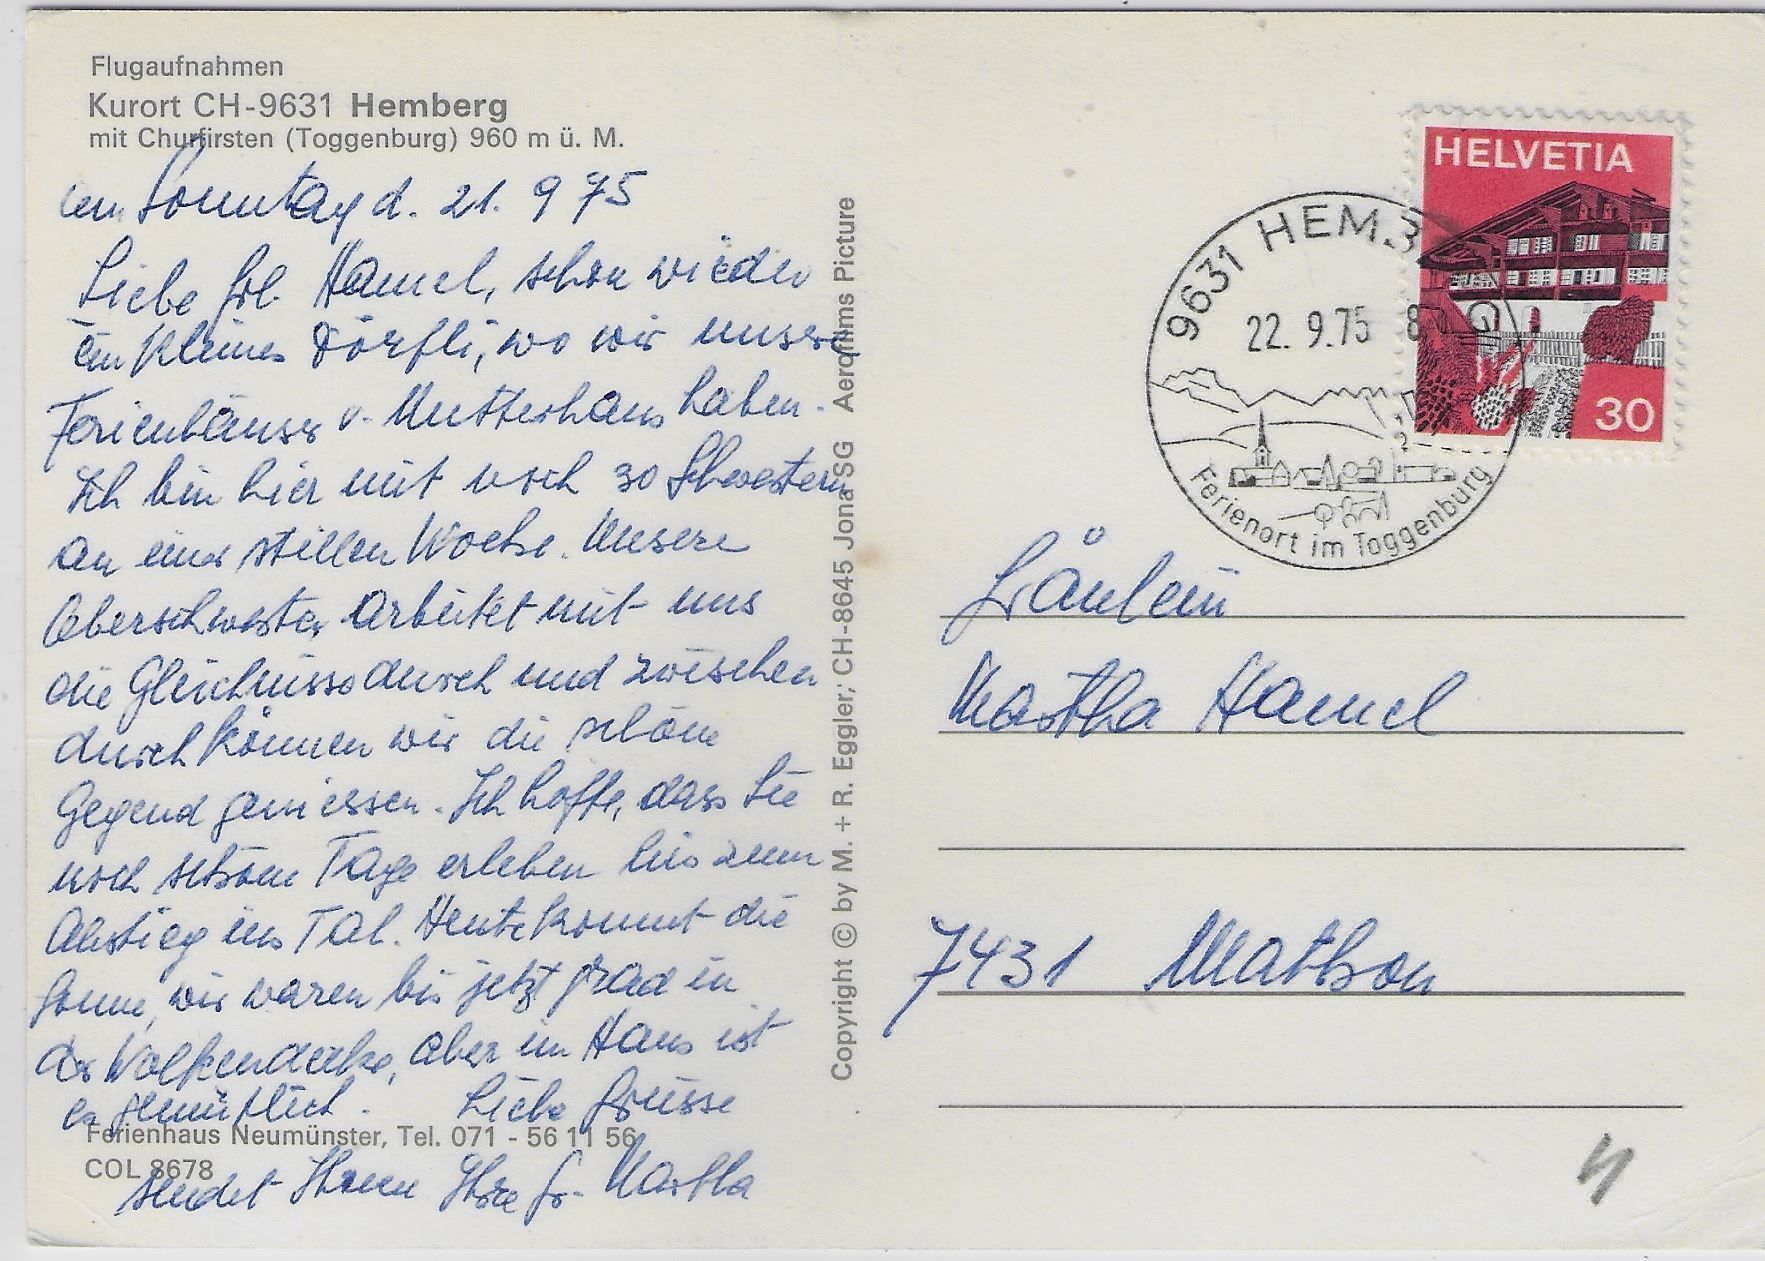 Flugaufnahmen
Kurort CH-9631 Hemberg
mit Churfirsten (Toggenburg) 960 m ü. M.
am Sonntag d. 21. 9 75
Liebe Frl. Hamel, schon wieder
ein kleines Dörfli, wo wir unsere
Ferienhäuser v. Mutterhaus haben.
Ich bin hier mit noch 30 Schwestern
an einer stillen Woche. Unsere
Oberschwester arbeitet mit uns
die Gleichnisse durch und zwischen
durch können wir die schöne
Gegend geniessen. Ich hoffe, dass Sie
noch schöne Tage erleben bis zum
Abstieg ins Tal. Heute kommt die
Sonne, wir waren bis jetzt grad in
der Wolkendecke, aber im Haus ist
es gemütlich. Liebe Grüsse
Ferienhaus Neumünster, Tel. 071 - 56 11 56
COL 8678
sendet Ihnen Ihre Sr. Martha
Copyright © by M. + R. Eggler; CH-8645 Jona SG Aerofilms Picture
HELVETIA
30
9631 HEMB
22. 9.75
Ferienort im Toggenburg
Fräulein
Martha Hamel
7431 Mathon